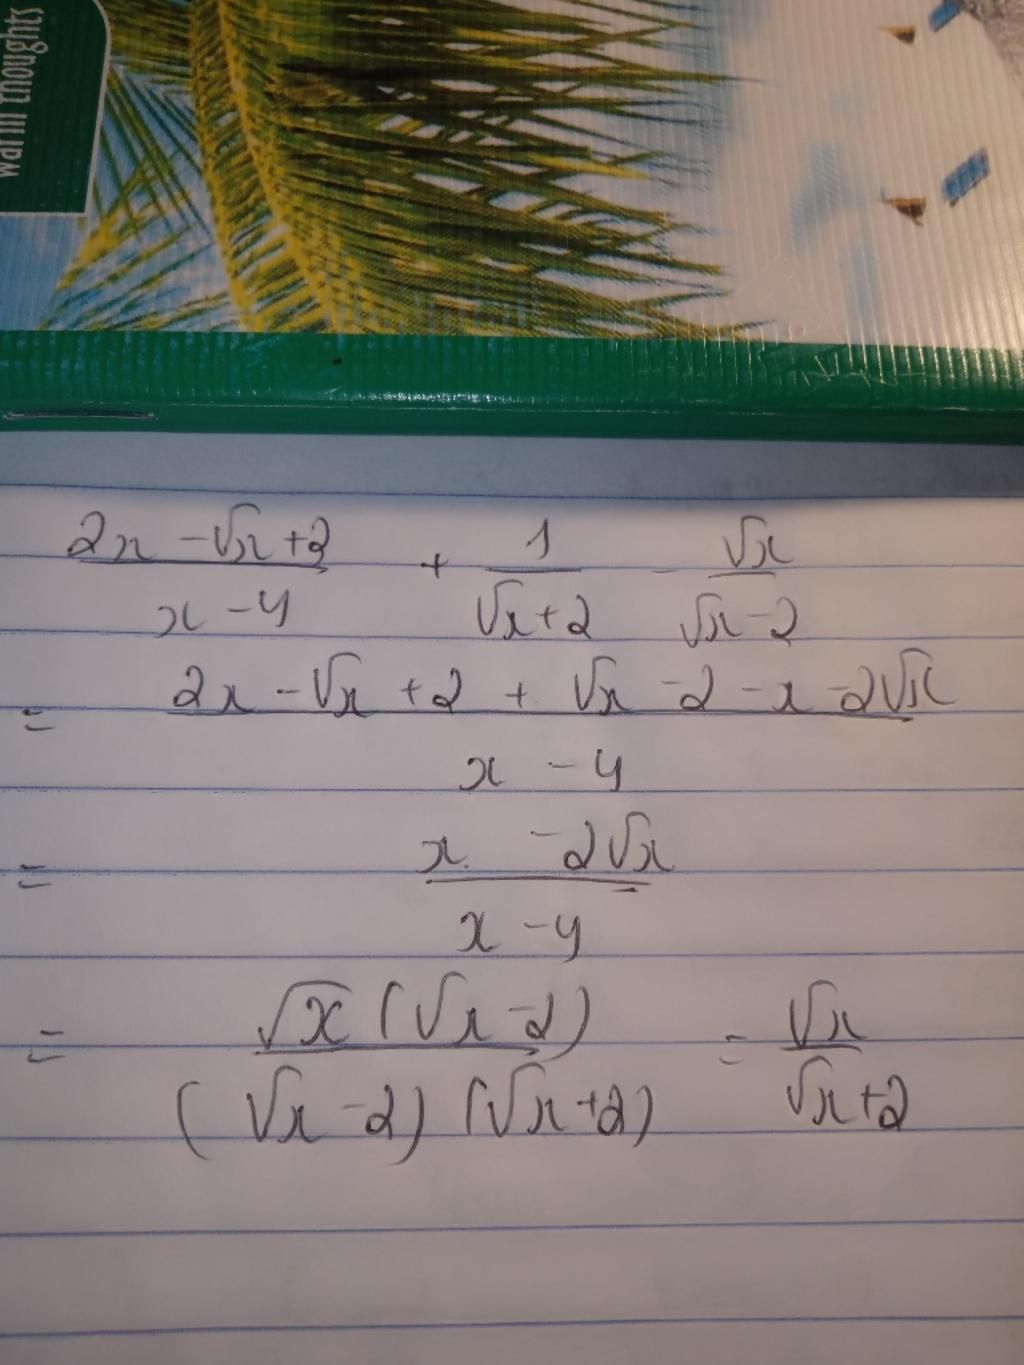 warm thoughts
2x - √x + 2 / x - 4 + 1 / √x + 2 - √x / √x - 2
= 2x - √x + 2 + √x - 2 - x - 2√x / x - 4
= x - 2√x / x - 4
= √x (√x - 2) / (√x - 2) (√x + 2) = √x / √x + 2